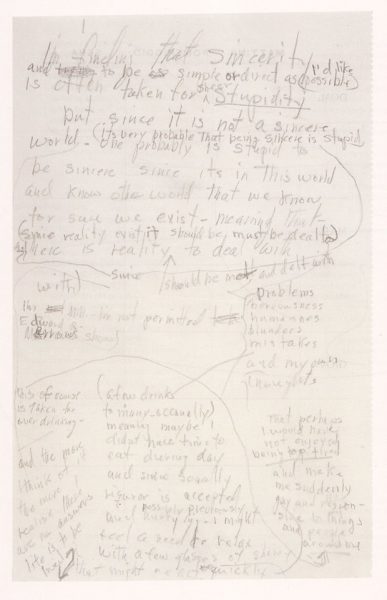 I'm finding that sincerity
and to be simple or direct as (possible) I'd like
is often taken for sheer stupidity
but since it is not a sincere
world - (it's very probable that being sincere is stupid)
one probably is stupid to
be sincere since it's in this world
and know other world that we know
for sure we exist - meaning that -
(since reality exist it should be must be dealt
there is reality to deal with
with)
since should be met and delt with
Problems
nervousness
humanness
blunders
mistakes
and my own
thoughts
still - im not permitted
Edward G.
this of course
is taken for
over drinking -
and the more
I think of it
the more I
realize there
are no answers
life is to be
lived
(a few drinks
to many - socually)
meaning maybe I
didnt have time to
eat during day
and since soually
is accepted
possibly previously
I might
feel a need to relax
with a few glasses of sherry
that might react quickly
that perhaps
I would have
not enjoyed
being too tired
and make
me suddenly
gay and
to things
and people
around me